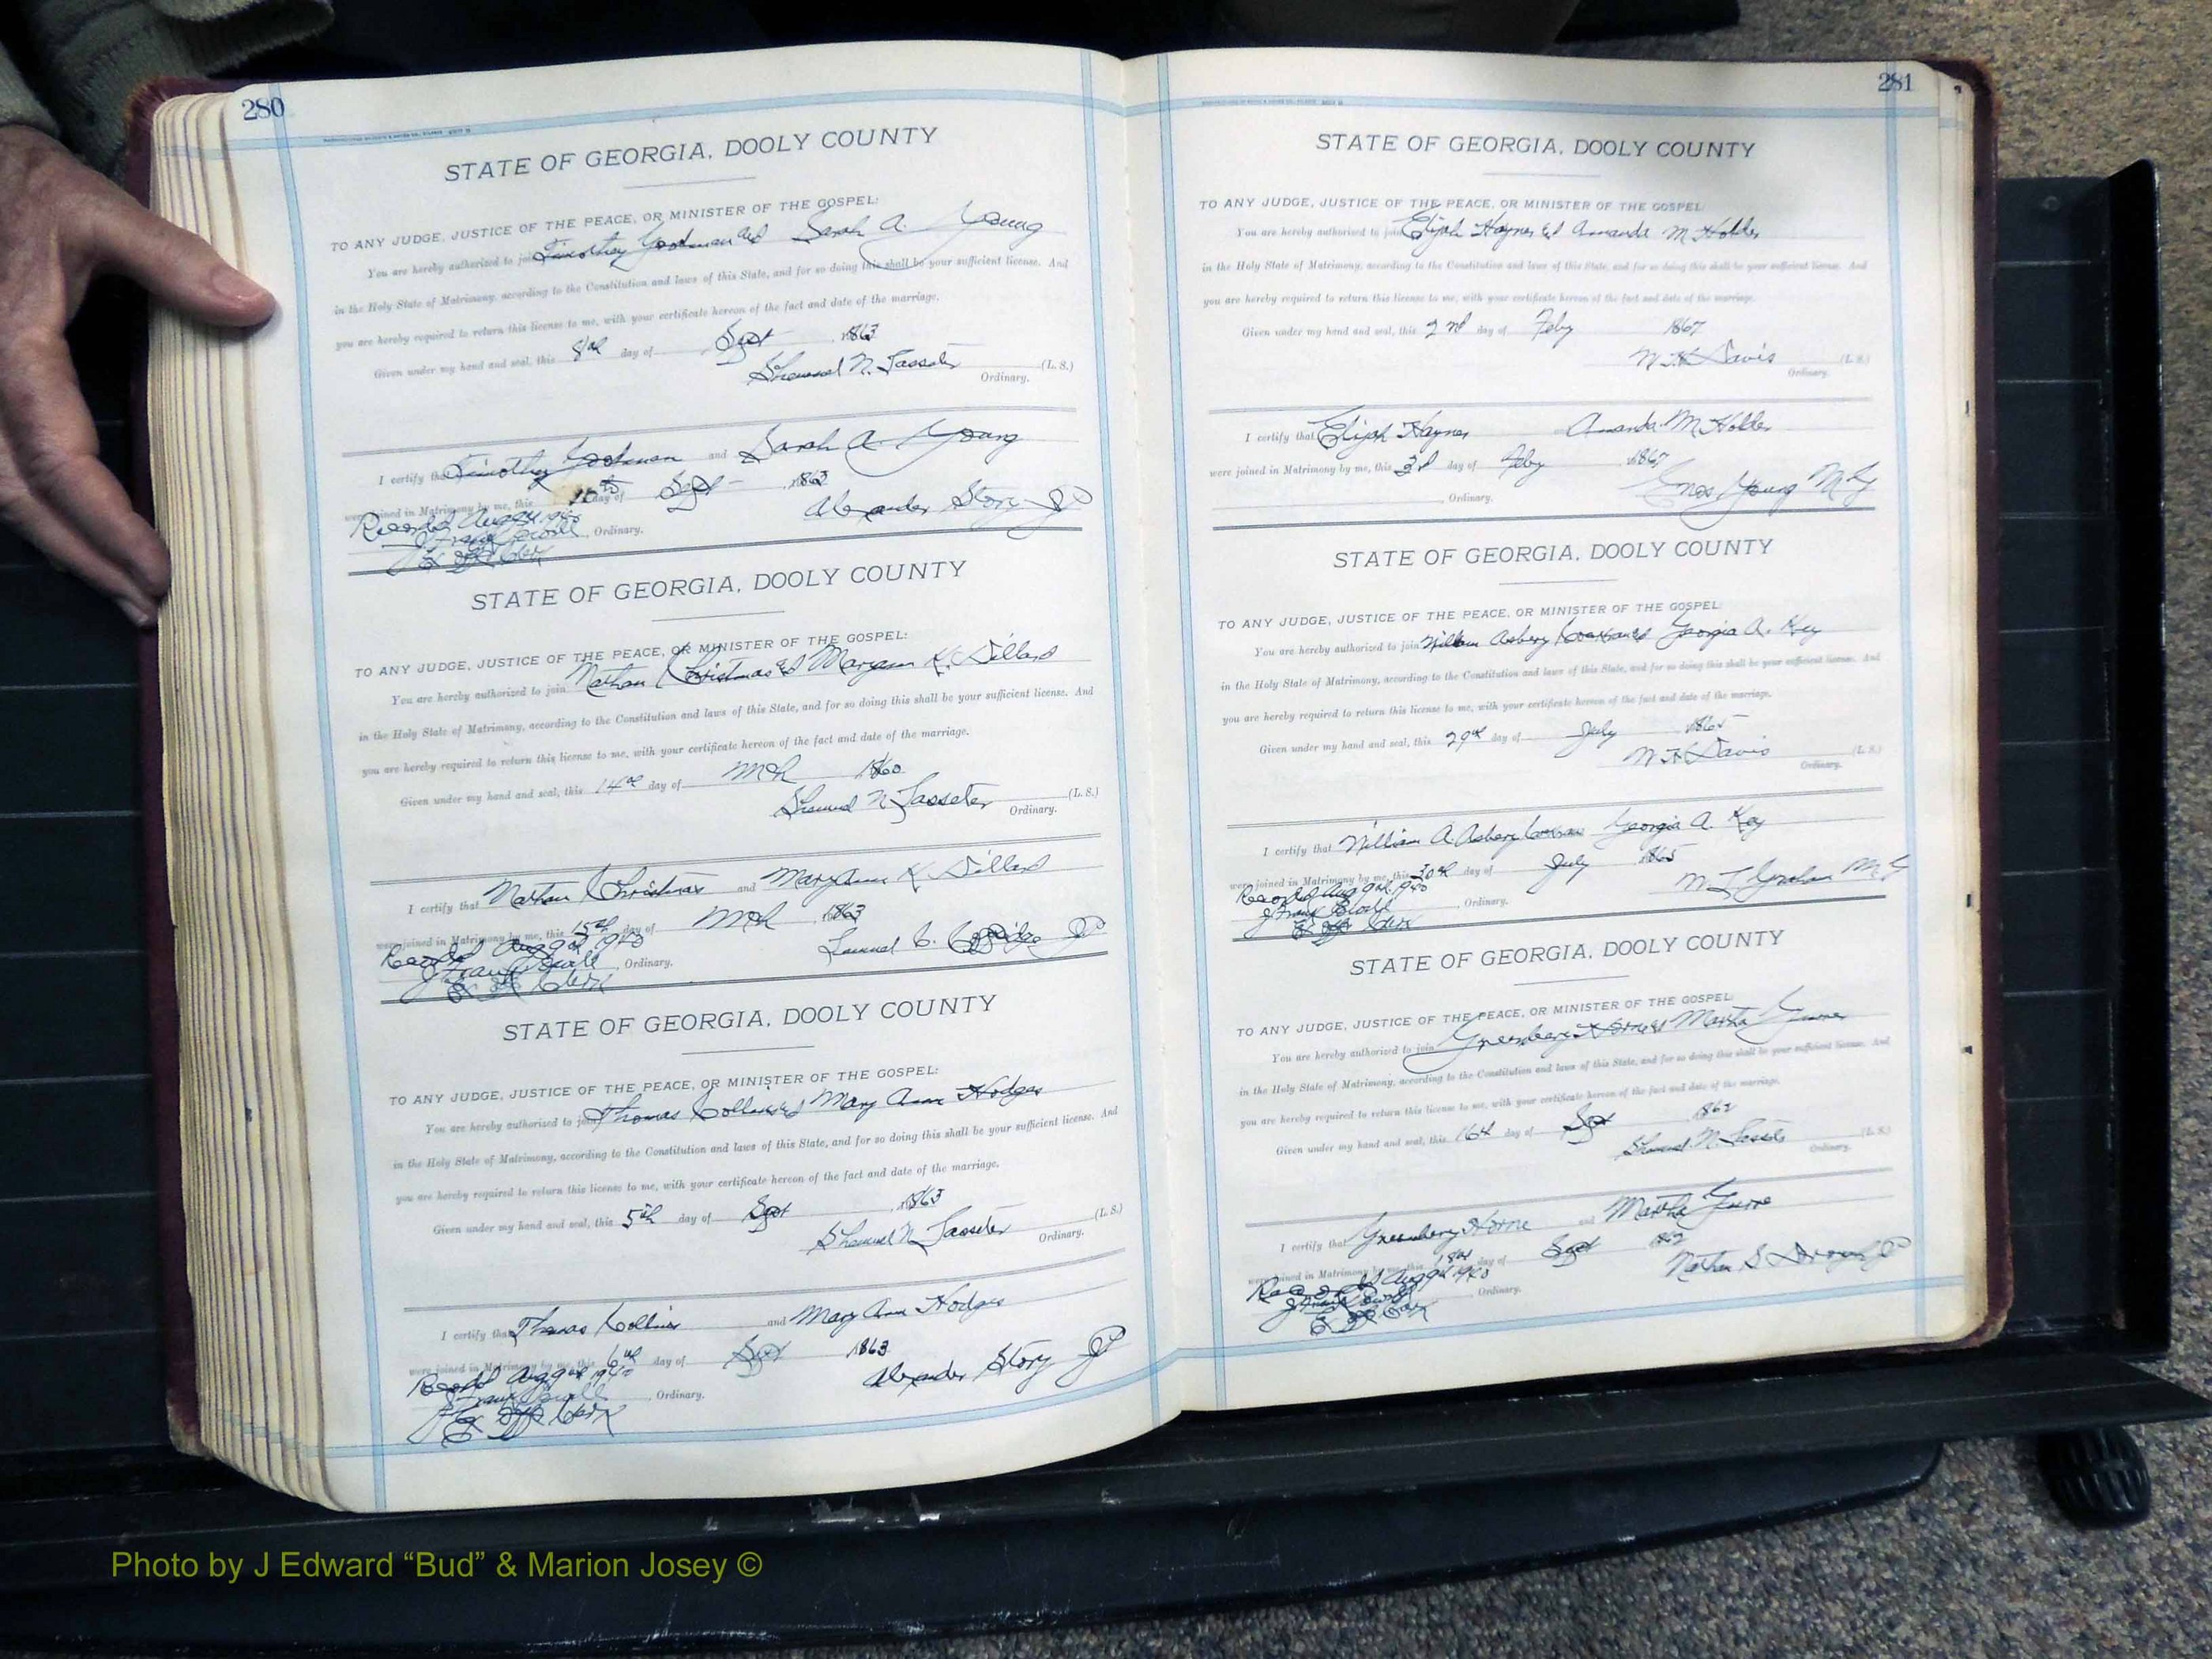 280
STATE OF GEORGIA, DOOLY COUNTY
TO ANY JUDGE, JUSTICE OF THE PEACE, OR MINISTER OF THE GOSPEL:
You are hereby authorized to join Timothy Goodman and Sarah A. Young
in the Holy State of Matrimony, according to the Constitution and laws of this State, and for so doing this shall be your sufficient license. And
you are hereby required to return this license to me, with your certificate hereon of the fact and date of the marriage.
Given under my hand and seal, this day of Sept 1863
N. Lasseter (L. S.)
Ordinary.
I certify that Timothy Goodman and Sarah A. Young
were joined in Matrimony by me, this 10th day of Sept 1863
Alexander Story JP
Recorded Aug 1940 , Ordinary.
Clerk
STATE OF GEORGIA, DOOLY COUNTY
TO ANY JUDGE, JUSTICE OF THE PEACE, OR MINISTER OF THE GOSPEL:
You are hereby authorized to join Nathan Christmas and Maryann K. Dillard
in the Holy State of Matrimony, according to the Constitution and laws of this State, and for so doing this shall be your sufficient license. And
you are hereby required to return this license to me, with your certificate hereon of the fact and date of the marriage.
Given under my hand and seal, this 14th day of Mch 1860
N Lasseter (L. S.)
Ordinary.
I certify that Nathan Christmas and MaryAnn K Dillard
were joined in Matrimony by me, this 15th day of Mch 1863
JP
Recorded Aug 9th 1940 , Ordinary.
Clerk
STATE OF GEORGIA, DOOLY COUNTY
TO ANY JUDGE, JUSTICE OF THE PEACE, OR MINISTER OF THE GOSPEL:
You are hereby authorized to join Thomas Collins and Mary Ann Hodges
in the Holy State of Matrimony, according to the Constitution and laws of this State, and for so doing this shall be your sufficient license. And
you are hereby required to return this license to me, with your certificate hereon of the fact and date of the marriage.
Given under my hand and seal, this 5th day of Sept 1863
N Lasseter (L. S.)
Ordinary.
I certify that Thomas Collins and Mary Ann Hodges
were joined in Matrimony by me, this 6th day of Sept 1863
Alexander Story JP
Recorded Aug 9th 1940 , Ordinary.
Clerk
281
STATE OF GEORGIA, DOOLY COUNTY
TO ANY JUDGE, JUSTICE OF THE PEACE, OR MINISTER OF THE GOSPEL:
You are hereby authorized to join Elijah Haynes and Amanda M Holder
in the Holy State of Matrimony, according to the Constitution and laws of this State, and for so doing this shall be your sufficient license. And
you are hereby required to return this license to me, with your certificate hereon of the fact and date of the marriage.
Given under my hand and seal, this 2nd day of Feby 1867
W. H. Davis (L. S.)
Ordinary.
I certify that Elijah Haynes and Amanda M Holder
were joined in Matrimony by me, this 3d day of Feby 1867
, Ordinary. Enos Young M G
STATE OF GEORGIA, DOOLY COUNTY
TO ANY JUDGE, JUSTICE OF THE PEACE, OR MINISTER OF THE GOSPEL:
You are hereby authorized to join William Asbery and Georgia A. Key
in the Holy State of Matrimony, according to the Constitution and laws of this State, and for so doing this shall be your sufficient license. And
you are hereby required to return this license to me, with your certificate hereon of the fact and date of the marriage.
Given under my hand and seal, this 29th day of July 1865
W H Davis (L. S.)
Ordinary.
I certify that William A. Asbery Georgia A. Key
were joined in Matrimony by me, this 30th day of July 1865
Graham M G
Recorded Aug 9th 1940 , Ordinary.
Clerk
STATE OF GEORGIA, DOOLY COUNTY
TO ANY JUDGE, JUSTICE OF THE PEACE, OR MINISTER OF THE GOSPEL:
You are hereby authorized to join Greenbery Horne and Martha
in the Holy State of Matrimony, according to the Constitution and laws of this State, and for so doing this shall be your sufficient license. And
you are hereby required to return this license to me, with your certificate hereon of the fact and date of the marriage.
Given under my hand and seal, this 16th day of Sept 1862
N. Lasseter (L. S.)
Ordinary.
I certify that Greenbery Horne and Martha
were joined in Matrimony by me, this 18th day of Sept 1862
Nathan S JP
Recorded Aug 9th 1940 , Ordinary.
Clerk
Photo by J Edward “Bud” & Marion Josey ©